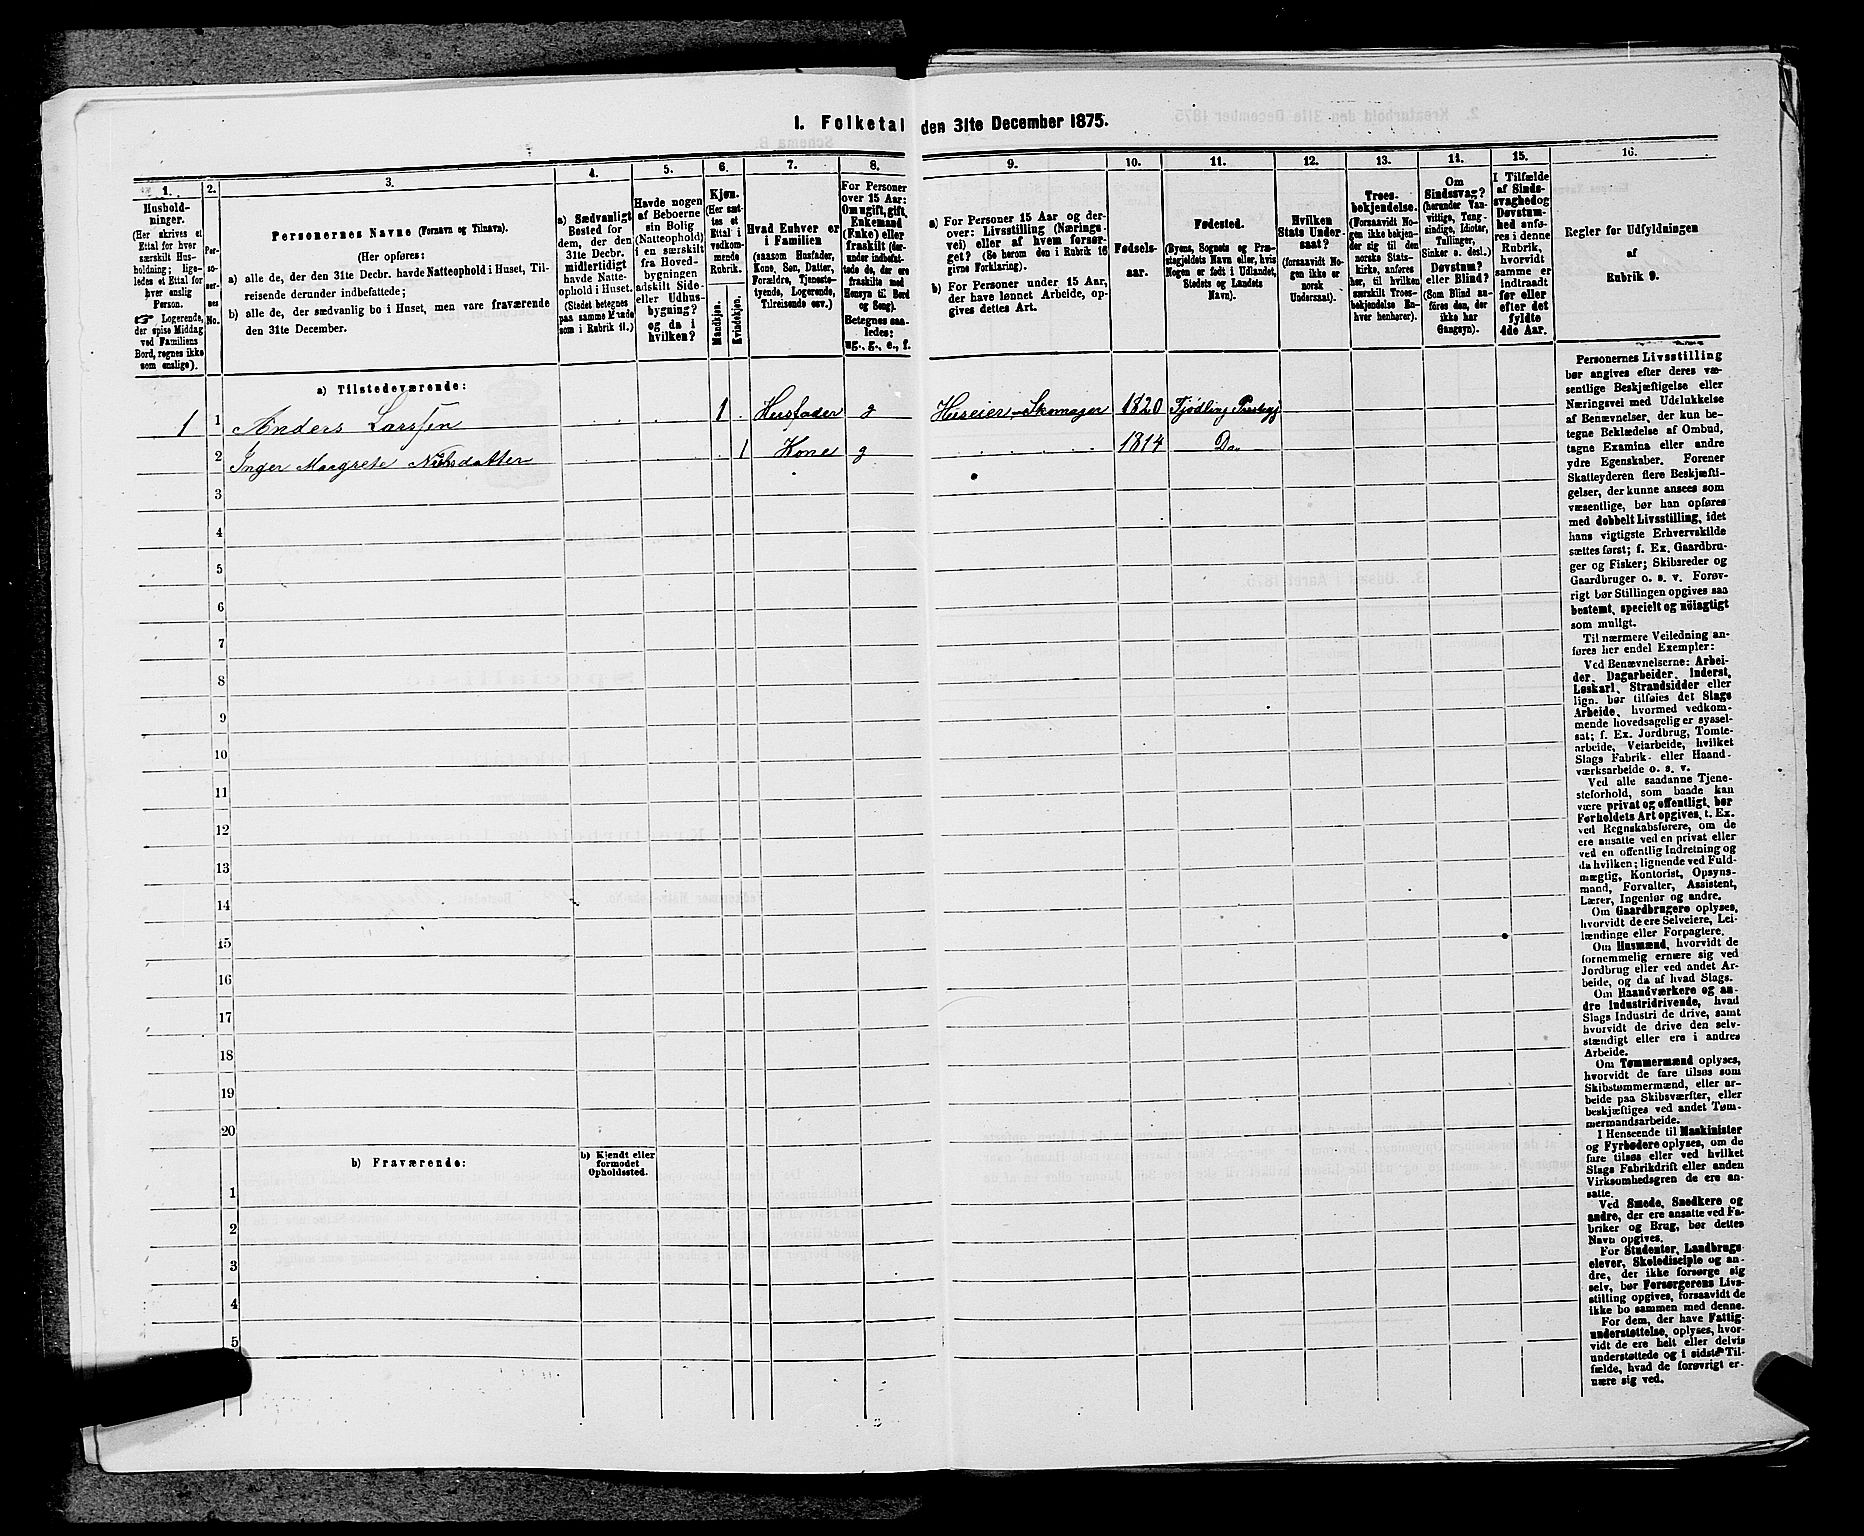 1. Folketal den 31te December 1875.
1.
Husholdninger.
(Her skrives et
Ettal for hver
særskilt Husholdning;
ligeledes et Ettal for
hver enslig
Person.
☞ Logerende,
der spise Middag
ved Familiens
Bord, regnes ikke
som enslige).
2.
Personernes
No.
3.
Personernes Navne (Fornavn og Tilnavn).
(Her opføres:
a) alle de, der den 31te Decbr. havde Natteophold i Huset, Tilreisende
derunder indbefattede;
b) alle de, der sædvanlig bo i Huset, men vare fraværende
den 31te December.
4.
a) Sædvanligt
Bosted for
dem, der den
31te Decbr.
midlertidigt
havde Natteophold
i Huset.
(Stedet betegnes
paa samme Maade
som i Rubrik 11.)
5.
Havde nogen
af Beboerne
sin Bolig
(Natteophold)
i en særskilt
fra Hovedbygningen
adskilt Side-
eller Udhusbygning?
og da i
hvilken?
6.
Kjøn.
(Her sættes
et
Ettal i
vedkommende
Rubrik.
Mandkjøn.
Kvindekjøn.
7.
Hvad Enhver er
i Familien
(saasom Husfader,
Kone, Søn, Datter,
Forældre, Tjenestetyende,
Logerende,
Tilreisende osv.)
8.
For Personer
over 15 Aar:
Om ugift, gift,
Enkemand
(Enke) eller
fraskilt (derunder
indbefattede
de, der ere
fraskilte med
Hensyn til Bord
og Seng).
Betegnes saaledes:
ug., g., e., f.
9.
a) For Personer 15 Aar og derover:
Livsstilling (Næringsvei)
eller af hvem forsørget?
(Se herom den i Rubrik 16
givne Forklaring).
b) For Personer under 15 Aar,
der have lønnet Arbeide, opgives
dettes Art.
10.
Fødselsaar.
11.
Fødested.
(Byens, Sognets og Præstegjeldets
Navn eller, hvis
Nogen er født i Udlandet,
Stedets og Landets
Navn).
12.
Hvilken
Stats Undersaat?
(forsaavidt Nogen
ikke er
norsk
Undersaat).
13.
Troesbekjendelse.
(Forsaavidt Nogen
ikke bekjender
sig til den
norske Statskirke,
anføres
her, til hvilken
særskilt Troesbekjendelse
Enhver
henhører).
14.
Om
Sindssvag?
(herunder Vanvittige,
Tungsindige,
Idioter,
Tullinger,
Sinker o. desl.)
Døvstum?
eller Blind?
(Som Blind anføres
den, der
ikke har
Gangsyn).
15.
I Tilfælde
af Sindssvaghed
og
Døvstumhed
anføres
i denne
Rubrik,
hvorvidt
samme er
indtraadt
før eller
efter det
fyldte
4de Aar.
16.
Regler for Udfyldningen
af
Rubrik 9.
a) Tilstedeværende:
1 1 Anders Larssen 1 Husfader g Huseier - Skomager 1820 Fjødling Præstegj
2 Inger Margrete Nilsdatter 1 Kone g 1814 Do
3
4
5
6
7
8
9
10
11
12
13
14
15
16
17
18
19
20
b) Fraværende:
b) Kjendt eller
formodet
Opholdssted.
1
2
3
4
5
Personernes Livsstilling
bør angives efter deres væsentlige
Beskjæftigelse eller
Næringsvei med Udelukkelse
af Benævnelser, der kun betegne
Beklædelse af Ombud,
tagne Examina eller andre
ydre Egenskaber. Forener
Skatteyderen flere Beskjæftigelser,
der kunne ansees som
væsentlige, bør han opføres
med dobbelt Livsstilling, idet
hans vigtigste Erhvervskilde
sættes først; f. Ex. Gaardbruger
og Fisker; Skibsreder og
Gaardbruger o. s. v. Forøvrigt
bør Stillingen opgives saa
bestemt, specielt og nöiagtigt
som muligt.
Til nærmere Veiledning anføres
her endel Exempler:
Ved Benævnelserne: Arbeider,
Dagarbeider, Inderst,
Løskarl, Strandsidder eller
lign. bør tilføies det Slags
Arbeide, hvormed vedkommende
hovedsagelig er sysselsat;
f. Ex. Jordbrug, Tomtearbeide,
Veiarbeide, hvilket
Slags Fabrik- eller Haandværksarbeide
o. s. v.
Ved alle saadanne Tjenesteforhold,
som baade kan
være privat og offentligt, bør
Forholdets Art opgives, t. Ex.
ved Regnskabsførere, om de
ere ansatte ved en privat eller
ved en offentlig Indretning og
da hvilken; lignende ved Fuldmægtig,
Kontorist, Opsynsmand,
Forvalter, Assistent,
Lærer, Ingeniør og andre.
Om Gaardbrugere oplyses,
hvorvidt de ere Selveiere, Leilændinge
eller Forpagtere.
Om Husmænd, hvorvidt de
fornemmelig ernære sig ved
Jordbrug eller ved andet Arbeide,
og da af hvad Slags.
Om Haandværkere og andre
Industridrivende, hvad
Slags Industri de drive, samt
hvorvidt de drive den selvstændigt
eller ere i andres
Arbeide.
Om Tømmermænd oplyses,
hvorvidt de fare tilsøs som
Skibstømmermænd, eller arbeide
paa Skibsværfter, eller
beskjæftiges ved andet Tømmermandsarbeide.
I Henseende til Maskinister
og Fyrbødere oplyses, om de
fare tilsøs eller ved hvilket
Slags Fabrikdrift eller anden
Virksomhedsgren de ere ansatte.
Ved Smede, Snedkere og
andre, der ere ansatte ved Fabriker
og Brug, bør dettes
Navn opgives.
For Studenter, Landbrugselever,
Skoledisciple og andre,
der ikke forsørge sig
selv, bør Forsørgerens Livsstilling
opgives, forsaavidt de
ikke bo sammen med denne.
For dem, der have Fattigunderstøttelse,
oplyses, hvorvidt
de ere helt eller delvis
understøttede og i sidste Tilfælde,
hvad de forøvrigt ernære
sig ved.